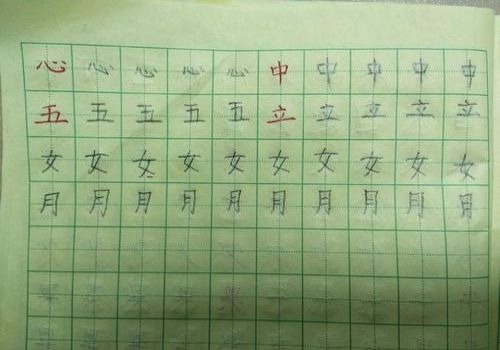 心心心心心中中中中中
五五五五五立立立立立
女女女女女女女女女女
月月月月月月月月月月